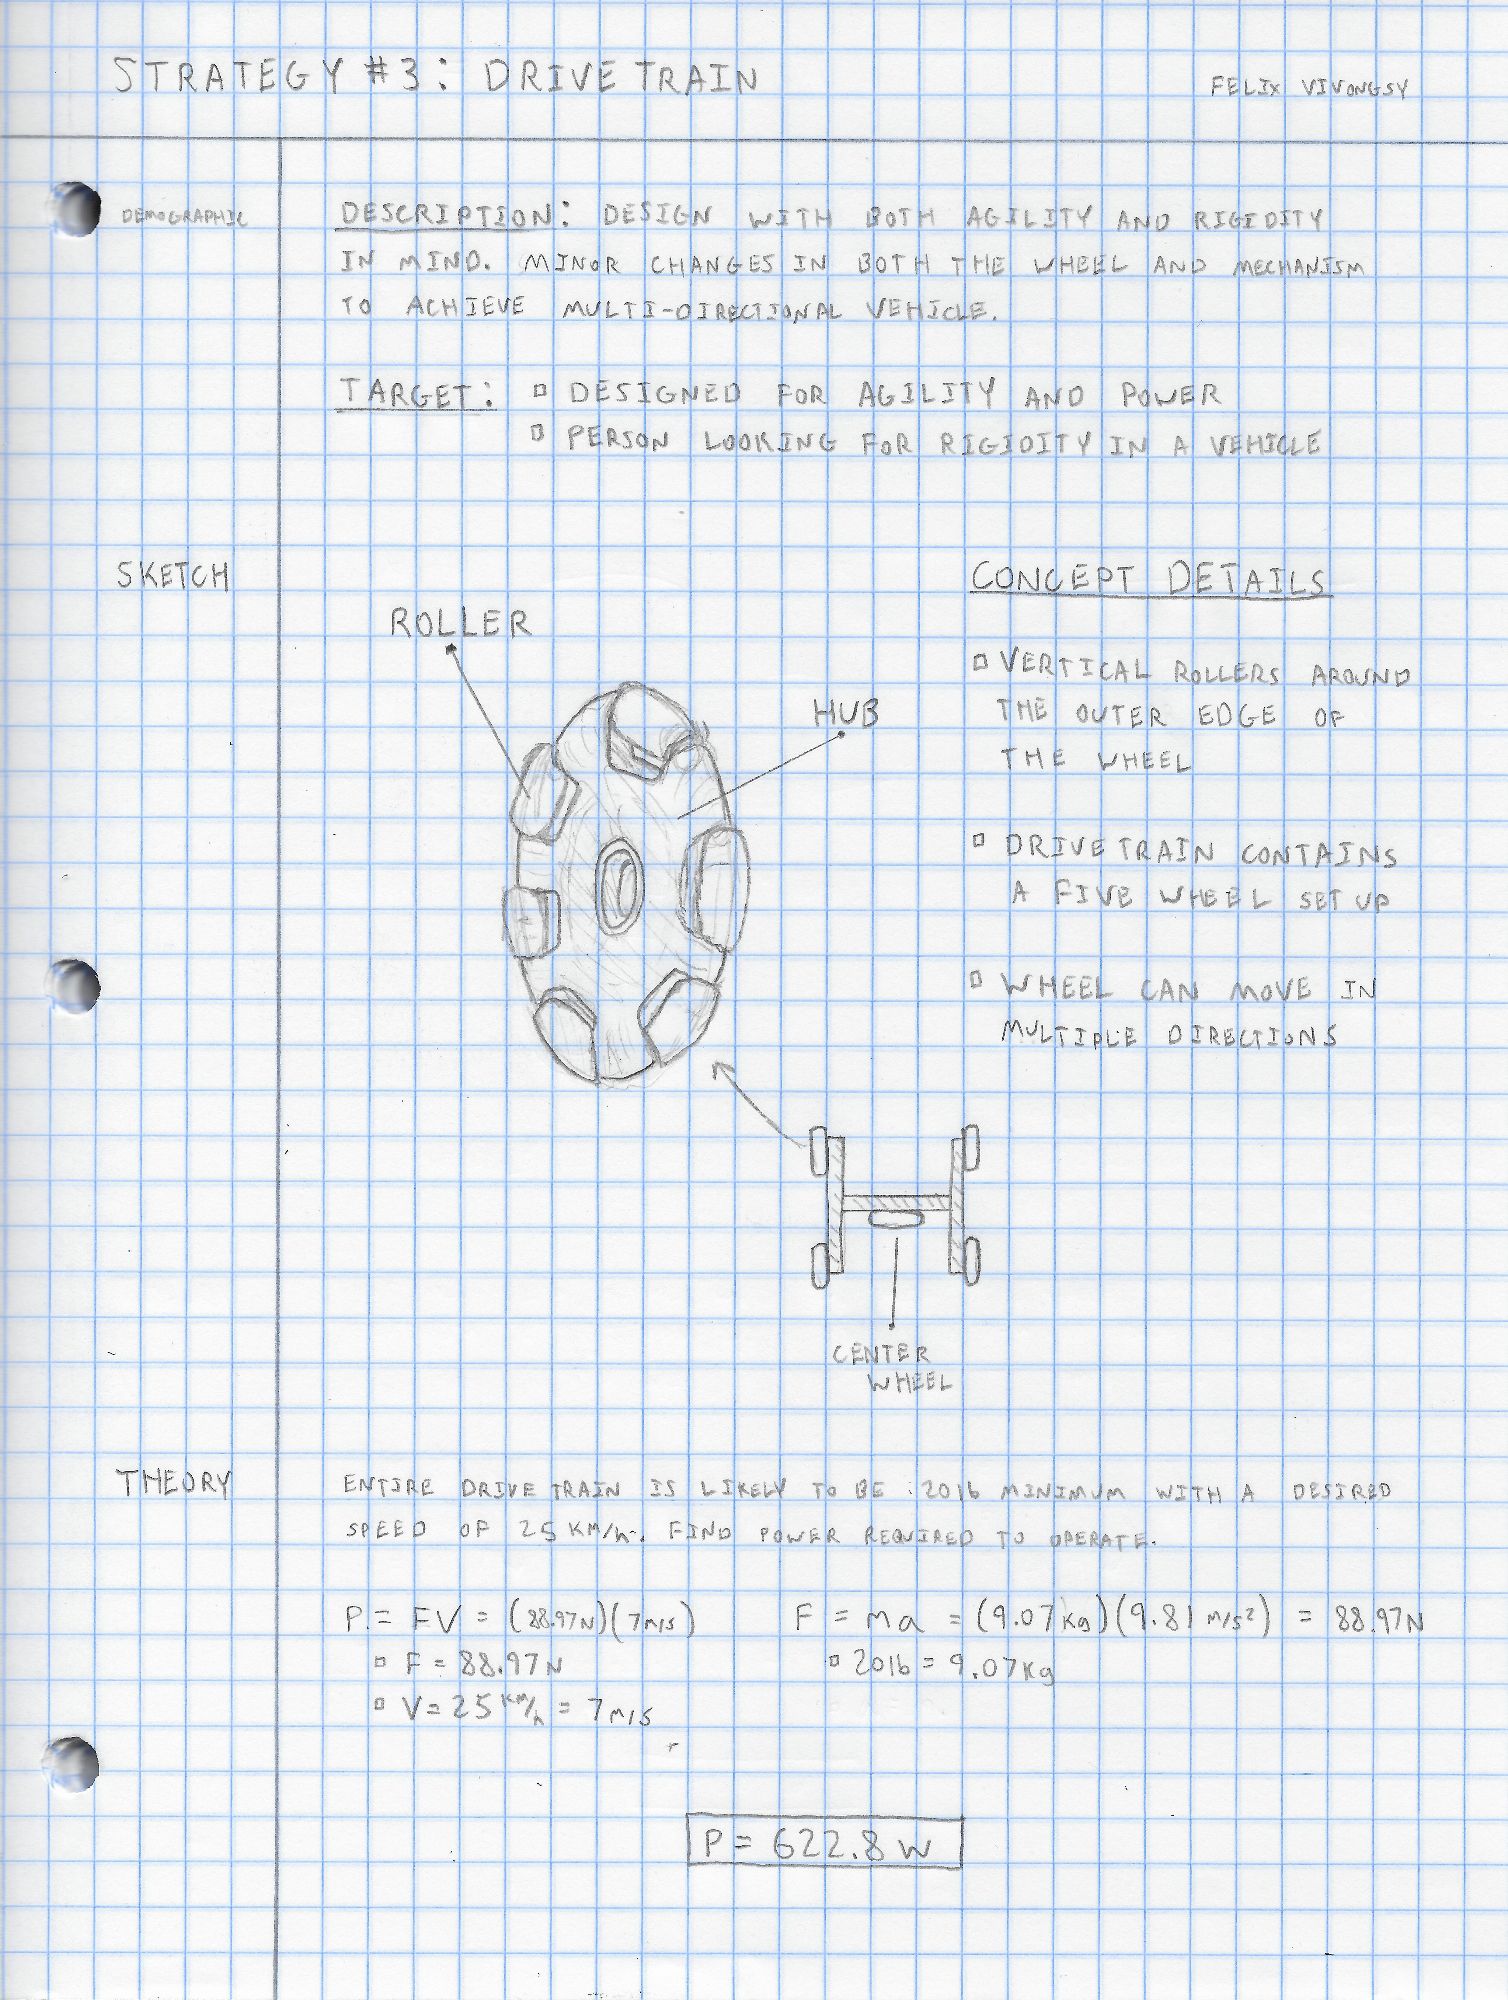 STRATEGY #3: DRIVE TRAIN
FELIX VIVONGSY
DEMOGRAPHIC
DESCRIPTION: DESIGN WITH BOTH AGILITY AND RIGIDITY
IN MIND. MINOR CHANGES IN BOTH THE WHEEL AND MECHANISM
TO ACHIEVE MULTI-DIRECTIONAL VEHICLE.
TARGET: ▫ DESIGNED FOR AGILITY AND POWER
▫ PERSON LOOKING FOR RIGIDITY IN A VEHICLE
SKETCH
ROLLER
HUB
CONCEPT DETAILS
▫ VERTICAL ROLLERS AROUND
THE OUTER EDGE OF
THE WHEEL
▫ DRIVE TRAIN CONTAINS
A FIVE WHEEL SET UP
▫ WHEEL CAN MOVE IN
MULTIPLE DIRECTIONS
CENTER
WHEEL
THEORY
ENTIRE DRIVE TRAIN IS LIKELY TO BE 20lb MINIMUM WITH A DESIRED
SPEED OF 25 KM/h. FIND POWER REQUIRED TO OPERATE.
P = FV = (88.97N)(7m/s)
▫ F = 88.97N
▫ V = 25 km/h = 7m/s
F = ma = (9.07kg)(9.81 m/s²) = 88.97N
▫ 20lb = 9.07kg
P = 622.8 W